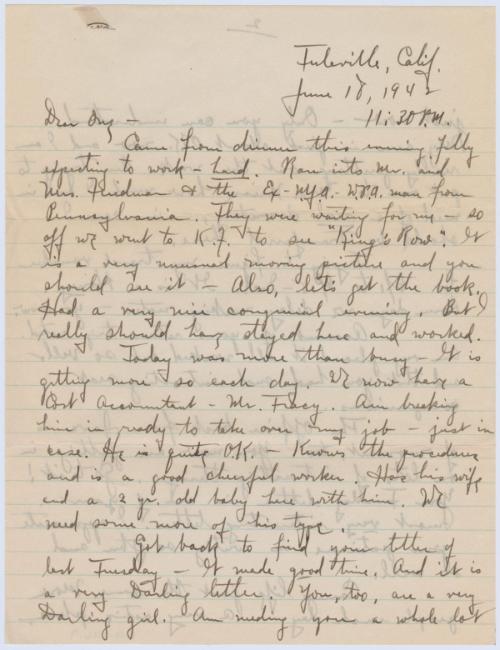 Tuleville, Calif.
June 18, 1942
11:30 P.M.
Dear One —
Came from dinner this evening fully
expecting to work – hard. Ran into Mr. and
Mrs. Friedman & the Ex-NYA-WPA man from
Pennsylvania. They were waiting for me – so
off we went to K.F. to see "King's Row". It
is a very unusual moving picture and you
should see it – Also, – let's get the book.
Had a very nice congenial evening. But I
really should have stayed here and worked.
Today was more than busy – It is
getting more so each day. We now have a
Cost Accountant – Mr. Tracy. Am breaking
him in ready to take over my job – just in
case. He is quite OK. – Knows the procedure
and is a good cheerful worker. Has his wife
and a 2 yr. old baby here with him. We
need some more of his type.
Got back to find your letter of
last Tuesday – It made good time. And it is
a very Darling letter. You, too, are a very
Darling girl. Am needing you a whole lot